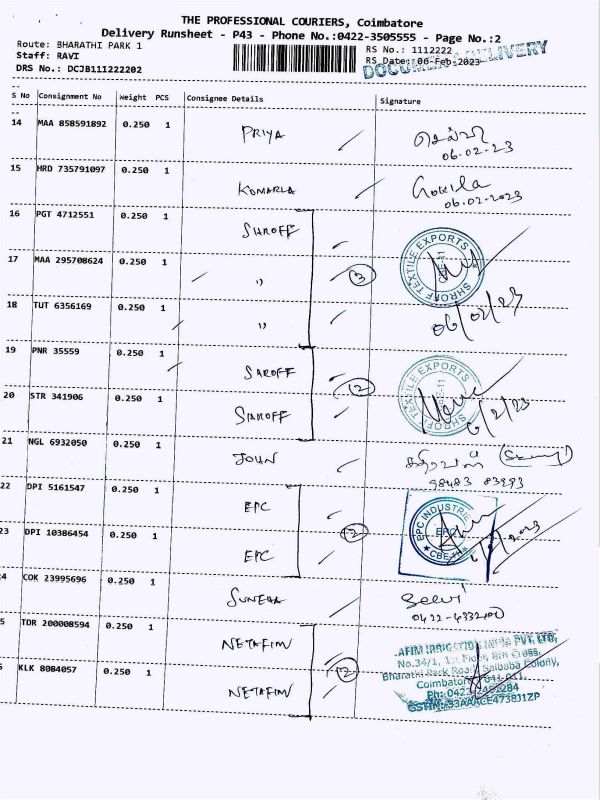 THE PROFESSIONAL COURIERS, Coimbatore
Delivery Runsheet - P43 - Phone No.:0422-3505555 - Page No.:2
Route: BHARATHI PARK 1 RS No.: 1112222
Staff: RAVI RS Date: 06-Feb-2023
DRS No.: DCJB111222202 DOCUMENT DELIVERY
S No Consignment No Weight PCS Consignee Details Signature
14 MAA 858591892 0.250 1 PRIYA செல்வி
06.02-23
15 HRD 735791097 0.250 1 KOMARLA Gokila
06.02-2023
16 PGT 4712551 0.250 1 SHROFF
SHROFF TEXTILE EXPORTS
17 MAA 295708624 0.250 1 〃 3
18 TUT 6356169 0.250 1 〃 06/02/23
19 PNR 35559 0.250 1 SHROFF 2
SHROFF TEXTILE EXPORTS
20 STR 341906 0.250 1 SHROFF 6/2/23
21 NGL 6932050 0.250 1 JOHN கதிரவன்
22 DPI 5161547 0.250 1 EPC
EPC INDUSTRIE
EPC
CBE-11
23 DPI 10386454 0.250 1 EPC 2
COK 23995696 0.250 1 SUNEHA Selvi
TDR 200008594 0.250 1 NETAFIM
KLK 8084057 0.250 1 NETAFIM 2
AFIM IRRIGATION INDIA PVT. LTD,
No.34/1, 1st Floor, 8th Cross,
Bharathi Park Road, Saibaba Colony,
Coimbatore - 641 011.